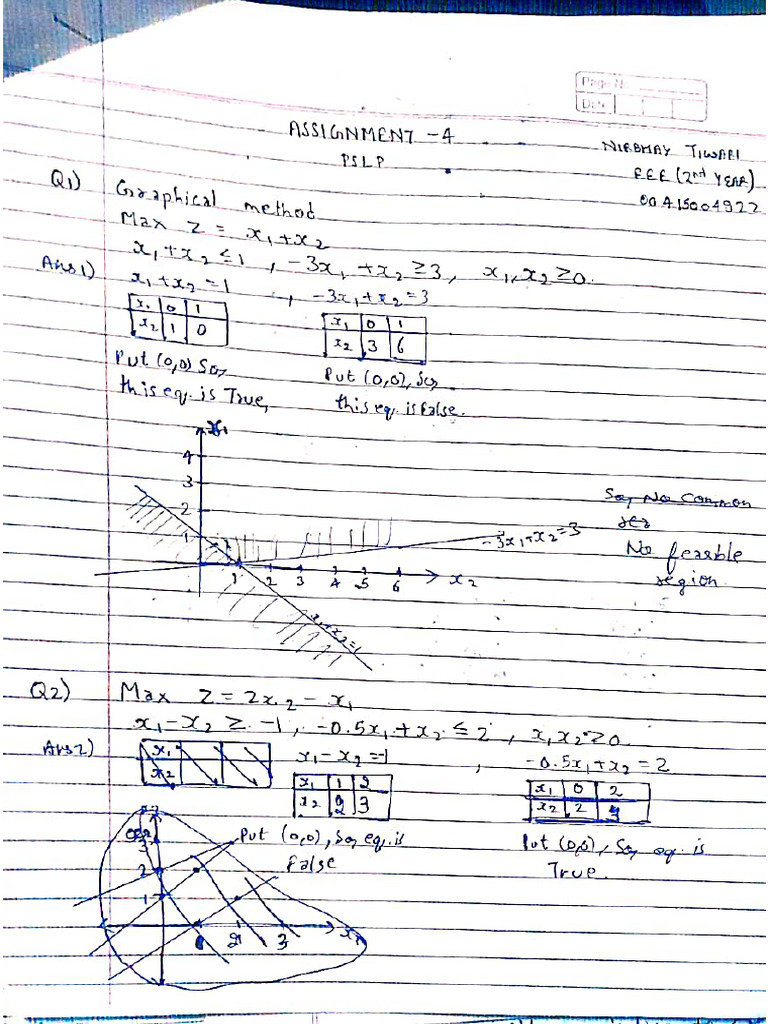 Page No.
Date
ASSIGNMENT - 4
PSLP
NIRBHAY TIWARI
EEE (2nd YEAR)
00415004922
Q1) Graphical method
Max Z = x₁+x₂
x₁+x₂ ≤ 1 , -3x₁ +x₂ ≥ 3, x₁,x₂ ≥ 0.
Ans1) x₁+x₂ = 1 , -3x₁+x₂ = 3
x₁ 0 1
x₂ 1 0
x₁ 0 1
x₂ 3 6
Put (0,0) So,
this eq. is True,
Put (0,0), So,
this eq. is False.
x₁
4
3
2
1
1 2 3 4 5 6 x₂
-3x₁+x₂=3
x₁+x₂=1
So, No Common
No feasible
region
Q2) Max Z = 2x₂ - x₁
x₁-x₂ ≥ -1, -0.5x₁+x₂ ≤ 2 , x₁x₂ ≥ 0
Ans2)
x₁
x₂
x₁-x₂ = -1 , -0.5x₁+x₂ = 2
x₁ 1 2
x₂ 2 3
x₁ 0 2
x₂ 2 3
Put (0,0), So, eq. is
False
Put (0,0), So, eq. is
True.
3
2
1
2 3 x₁